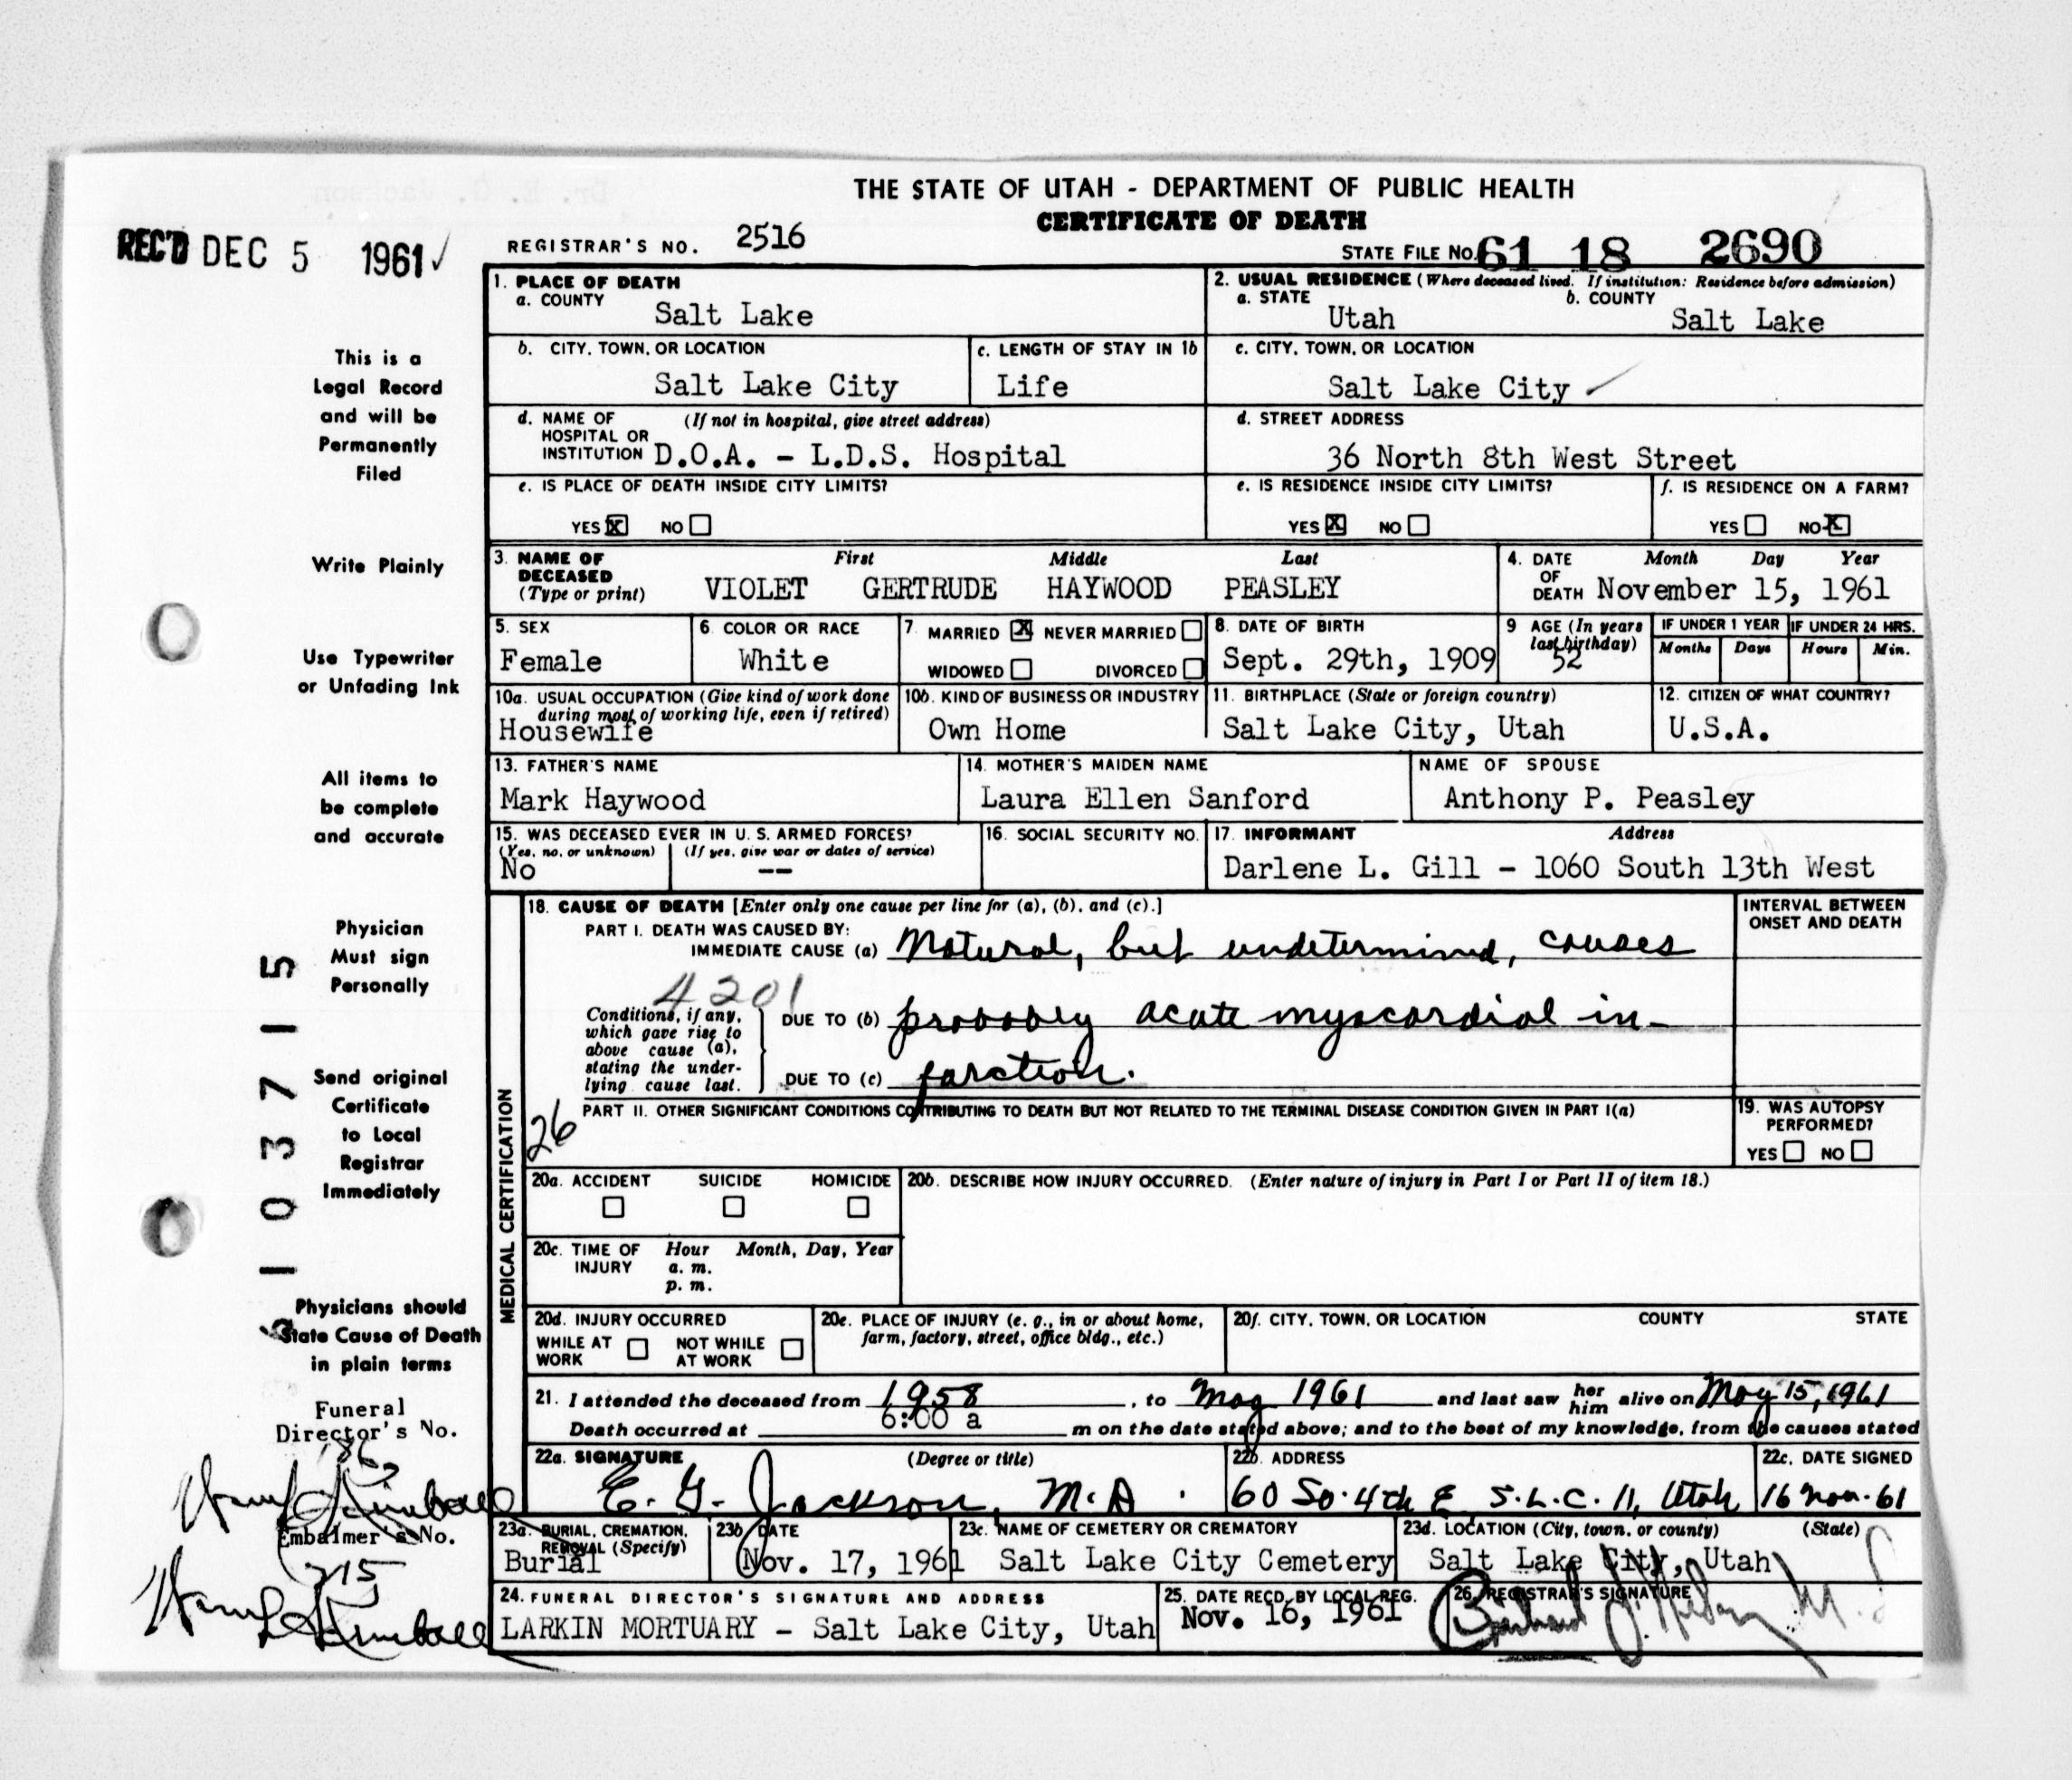 THE STATE OF UTAH - DEPARTMENT OF PUBLIC HEALTH
CERTIFICATE OF DEATH
REC'D DEC 5 1961
REGISTRAR'S NO. 2516
STATE FILE NO. 61 18 2690
1. PLACE OF DEATH
a. COUNTY
Salt Lake
2. USUAL RESIDENCE (Where deceased lived. If institution: Residence before admission)
a. STATE b. COUNTY
Utah Salt Lake
b. CITY, TOWN, OR LOCATION
Salt Lake City
c. LENGTH OF STAY IN 1b
Life
c. CITY, TOWN, OR LOCATION
Salt Lake City
d. NAME OF HOSPITAL OR INSTITUTION (If not in hospital, give street address)
D.O.A. - L.D.S. Hospital
d. STREET ADDRESS
36 North 8th West Street
e. IS PLACE OF DEATH INSIDE CITY LIMITS?
YES X NO
e. IS RESIDENCE INSIDE CITY LIMITS?
YES X NO
f. IS RESIDENCE ON A FARM?
YES NO X
3. NAME OF DECEASED (Type or print)
First Middle Last
VIOLET GERTRUDE HAYWOOD PEASLEY
4. DATE OF DEATH
Month Day Year
November 15, 1961
5. SEX
Female
6 COLOR OR RACE
White
7. MARRIED X NEVER MARRIED
WIDOWED DIVORCED
8. DATE OF BIRTH
Sept. 29th, 1909
9 AGE (In years last birthday)
52
IF UNDER 1 YEAR
Months Days
IF UNDER 24 HRS.
Hours Min.
10a. USUAL OCCUPATION (Give kind of work done during most of working life, even if retired)
Housewife
10b. KIND OF BUSINESS OR INDUSTRY
Own Home
11. BIRTHPLACE (State or foreign country)
Salt Lake City, Utah
12. CITIZEN OF WHAT COUNTRY?
U.S.A.
13. FATHER'S NAME
Mark Haywood
14. MOTHER'S MAIDEN NAME
Laura Ellen Sanford
NAME OF SPOUSE
Anthony P. Peasley
15. WAS DECEASED EVER IN U. S. ARMED FORCES?
(Yes, no, or unknown) (If yes, give war or dates of service)
No --
16. SOCIAL SECURITY NO.
17. INFORMANT Address
Darlene L. Gill - 1060 South 13th West
MEDICAL CERTIFICATION
18. CAUSE OF DEATH [Enter only one cause per line for (a), (b), and (c).]
INTERVAL BETWEEN ONSET AND DEATH
PART I. DEATH WAS CAUSED BY:
IMMEDIATE CAUSE (a) Natural, but undetermind, causes
4201
Conditions, if any, which gave rise to above cause (a), stating the underlying cause last.
DUE TO (b) probably acute myocardial in-
DUE TO (c) farction.
26
PART II. OTHER SIGNIFICANT CONDITIONS CONTRIBUTING TO DEATH BUT NOT RELATED TO THE TERMINAL DISEASE CONDITION GIVEN IN PART I(a)
19. WAS AUTOPSY PERFORMED?
YES NO
20a. ACCIDENT SUICIDE HOMICIDE
20b. DESCRIBE HOW INJURY OCCURRED. (Enter nature of injury in Part I or Part II of item 18.)
20c. TIME OF INJURY Hour Month, Day, Year
a. m.
p. m.
20d. INJURY OCCURRED
WHILE AT WORK NOT WHILE AT WORK
20e. PLACE OF INJURY (e. g., in or about home, farm, factory, street, office bldg., etc.)
20f. CITY, TOWN, OR LOCATION COUNTY STATE
21. I attended the deceased from 1958, to May 1961 and last saw her him alive on May 15, 1961
Death occurred at 6:00 a m on the date stated above; and to the best of my knowledge, from the causes stated
22a. SIGNATURE (Degree or title)
E. G. Jackson, M.D.
22b. ADDRESS
60 So. 4th E S.L.C. 11, Utah
22c. DATE SIGNED
16 Nov. 61
23a. BURIAL, CREMATION, REMOVAL (Specify)
Burial
23b DATE
Nov. 17, 1961
23c. NAME OF CEMETERY OR CREMATORY
Salt Lake City Cemetery
23d. LOCATION (City, town, or county) (State)
Salt Lake City, Utah
24. FUNERAL DIRECTOR'S SIGNATURE AND ADDRESS
LARKIN MORTUARY - Salt Lake City, Utah
25. DATE RECD. BY LOCAL REG.
Nov. 16, 1961
26. REGISTRAR'S SIGNATURE
This is a
Legal Record
and will be
Permanently
Filed
Write Plainly
Use Typewriter
or Unfading Ink
All items to
be complete
and accurate
Physician
Must sign
Personally
Send original
Certificate
to Local
Registrar
Immediately
Physicians should
State Cause of Death
in plain terms
Funeral
Director's No.
Kimball
Embalmer's No.
215
Kimball